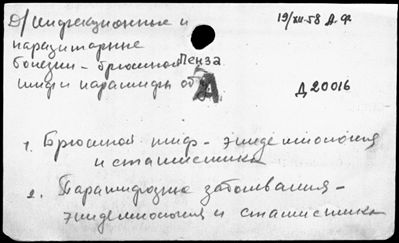 Д/Инфекционные и
паразитарные
болезни - брюшной Пенза
тиф и паратифы об
А
19/XII-58 А.Ф.
Д20016
1. Брюшной тиф - эпидемиология
и статистика
2. Паратифозные заболевания -
эпидемиология и статистика